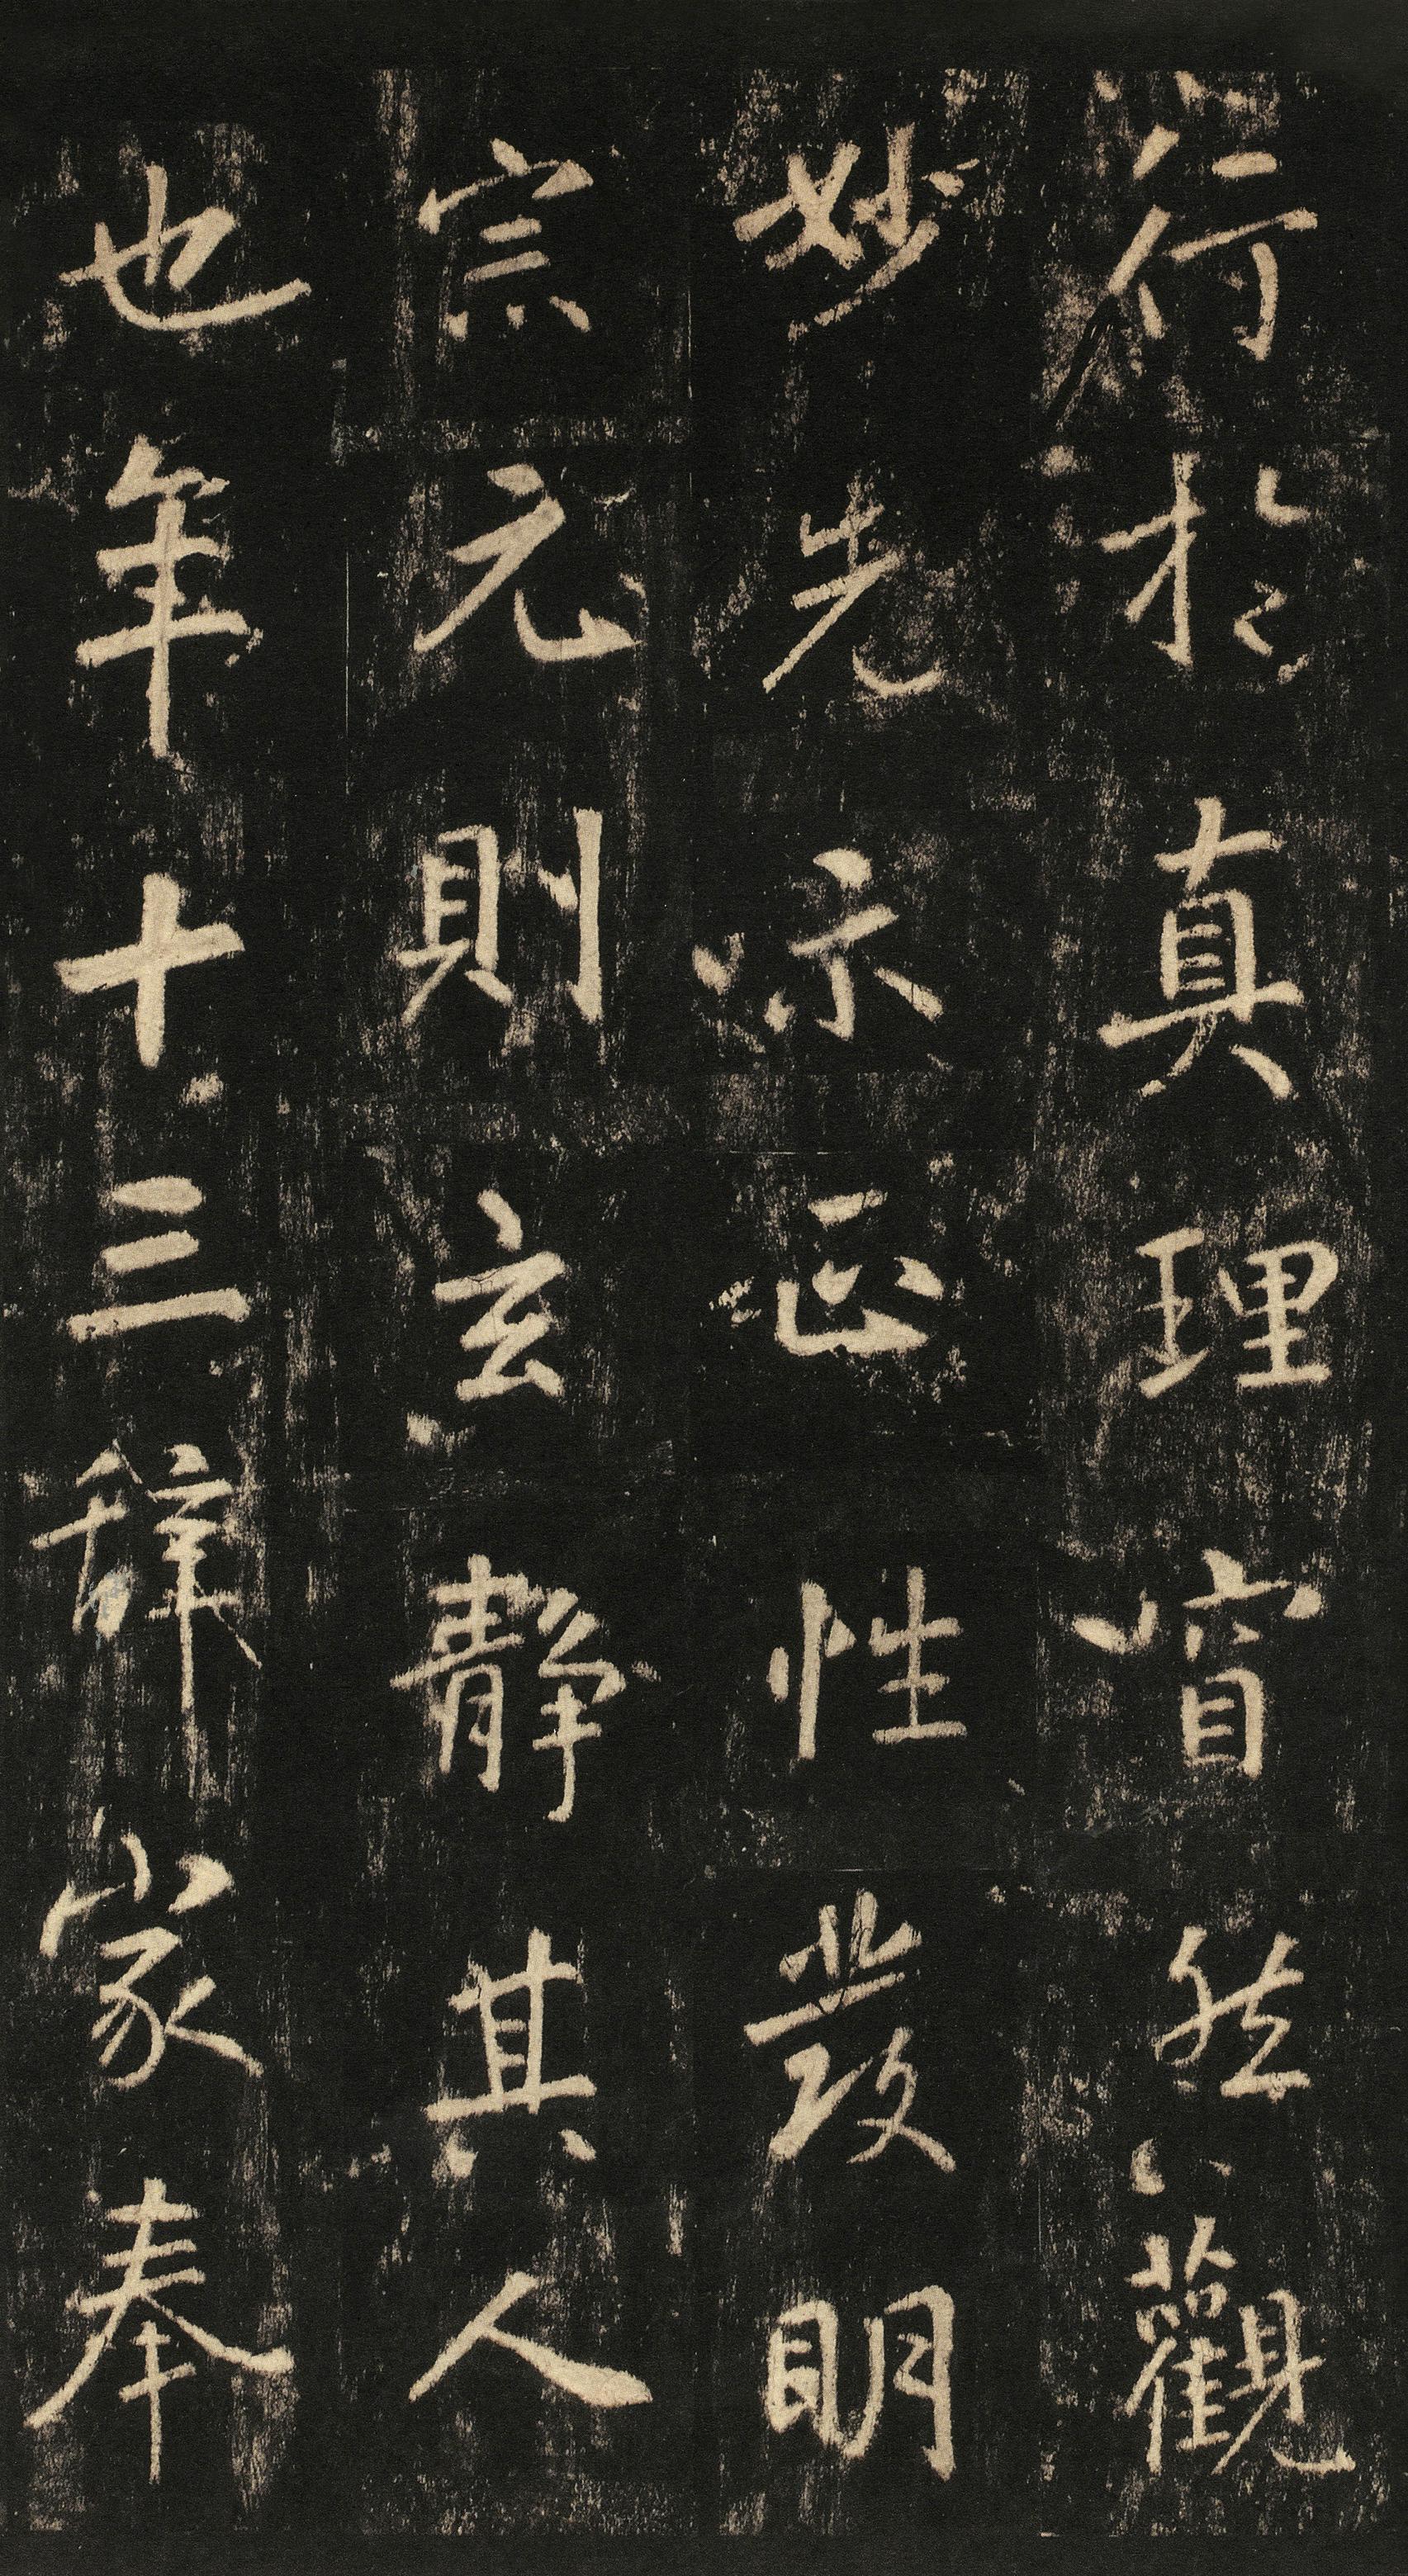 行於真理窅然觀
妙先示正性發明
宗元則玄靜其人
也年十三辭家奉